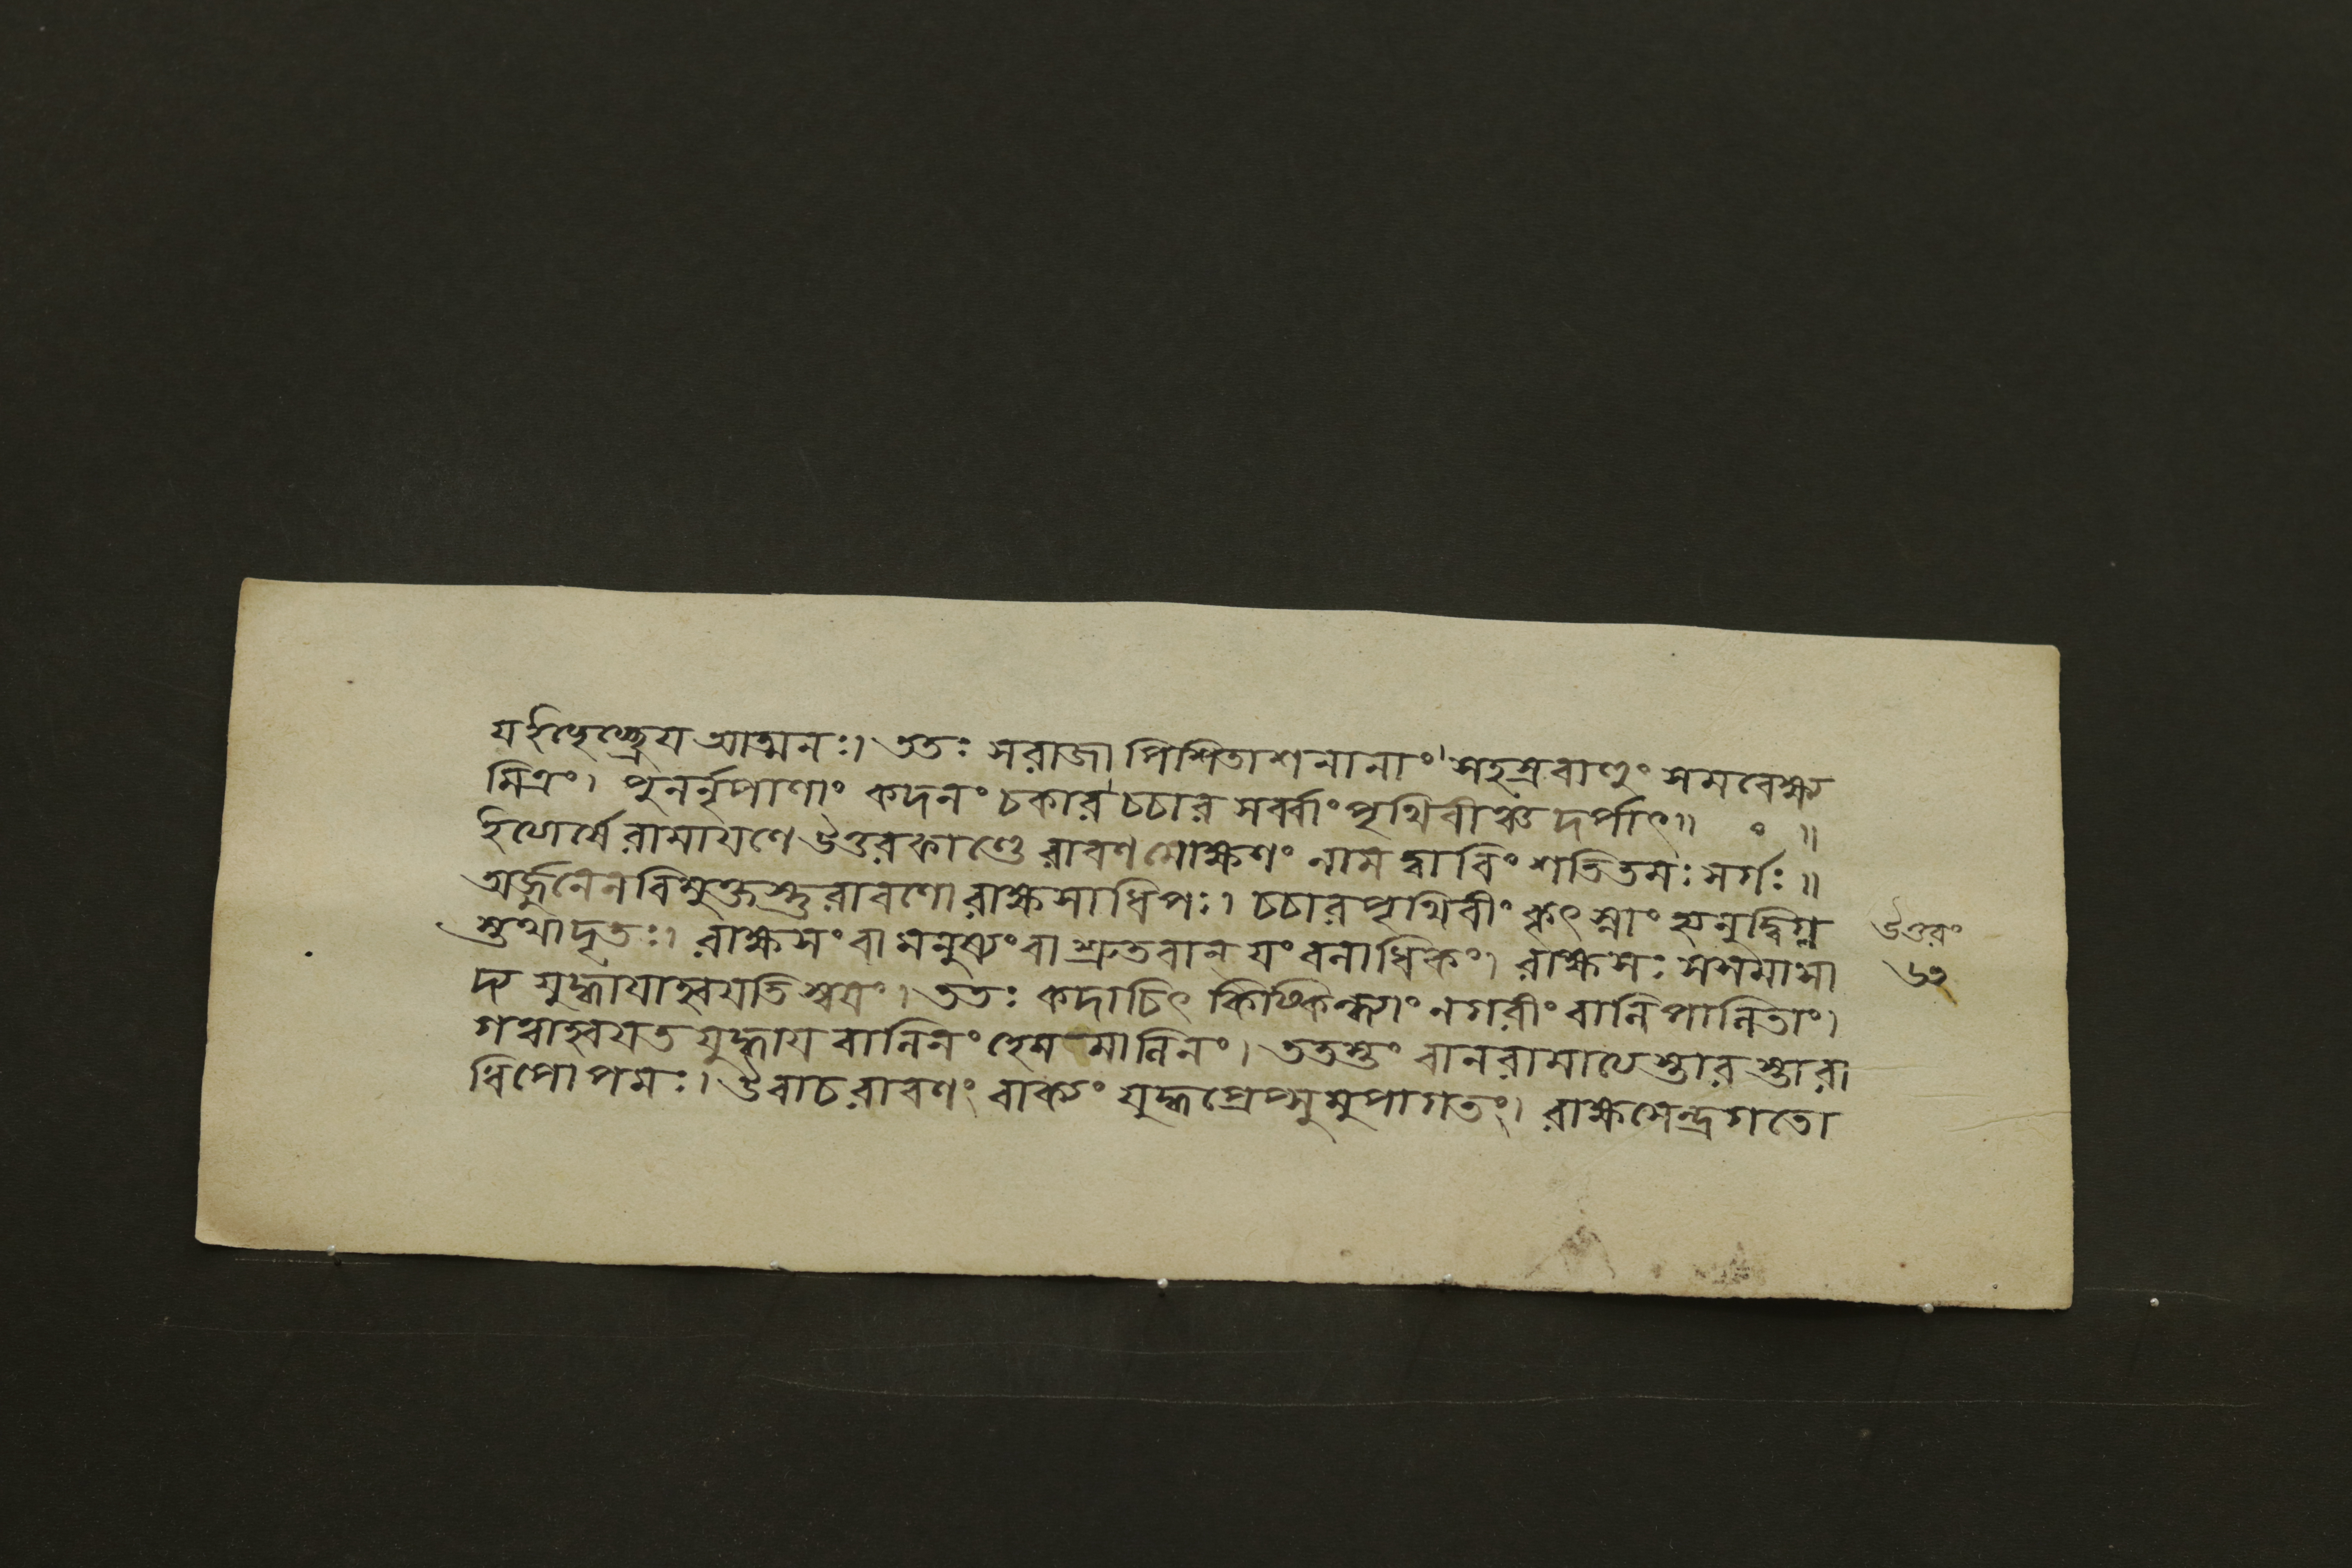 য ইচ্ছেচ্ছ্রেয আত্মনঃ। ততঃ স রাজা পিশিতাশনানাং সহস্রবাহুং সমবেক্ষ্য
মিত্রং। পুনর্নৃপাণাং কদনং চকার চচার সর্ব্বাং পৃথিবীঞ্চ দর্পাৎ॥ ৹ ॥
ইত্যার্ষে রামাযণে উত্তরকাণ্ডে রাবণমোক্ষণং নাম দ্বাবিংশতিতমঃ সর্গঃ॥
অর্জুনেন বিমুক্তস্তু রাবণো রাক্ষসাধিপঃ। চচার পৃথিবীং কৃৎস্নাং হ্যনুদ্বিগ্ন
স্তথাদৃতঃ। রাক্ষসং বা মনুষ্যং বা শ্রুতবান্ যং বলাধিকং। রাক্ষসঃ স সমাসা
দ্য যুদ্ধাযাহ্বযতি স্বযং। ততঃ কদাচিৎ কিষ্কিন্ধ্যাং নগরীং বালিপালিতাং।
গত্বাহ্বযত যুদ্ধায বালিনং হেমমালিনং। ততস্তং বানরামাত্যস্তারস্তারা
ধিপোপমঃ। উবাচ রাবণং বাক্যং যুদ্ধপ্রেপ্সুমুপাগতং। রাক্ষসেন্দ্র গতো
উত্তরং
৬২